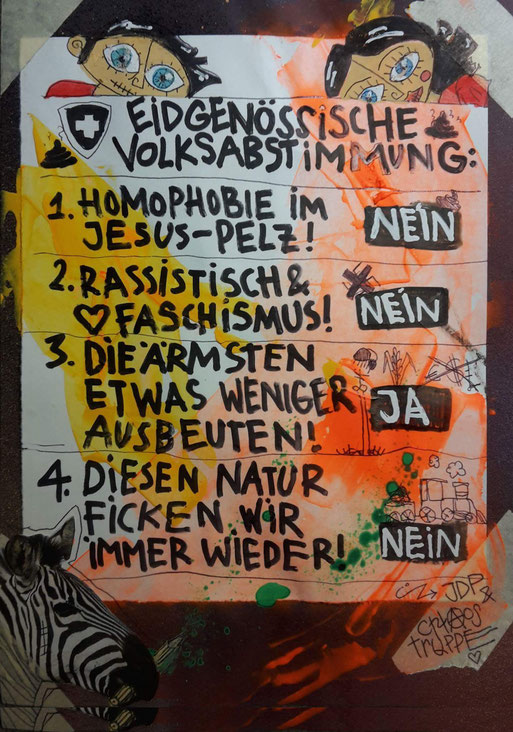 EiDGENÖSSiSCHE
VOLKSABSTiMMUNG:
1. HOMOPHOBIE iM
JESUS-PELZ!
NEiN
2. RASSiSTiSCH &
♡ FASCHiSMUS!
NEiN
3. DiE ÄRMSTEN
ETWAS WENiGER
AUSBEUTEN!
JA
4. DiESEN NATUR
FiCKEN WiR
iMMER WiEDER!
NEiN
JDP &
CHAOS
TRUPPE